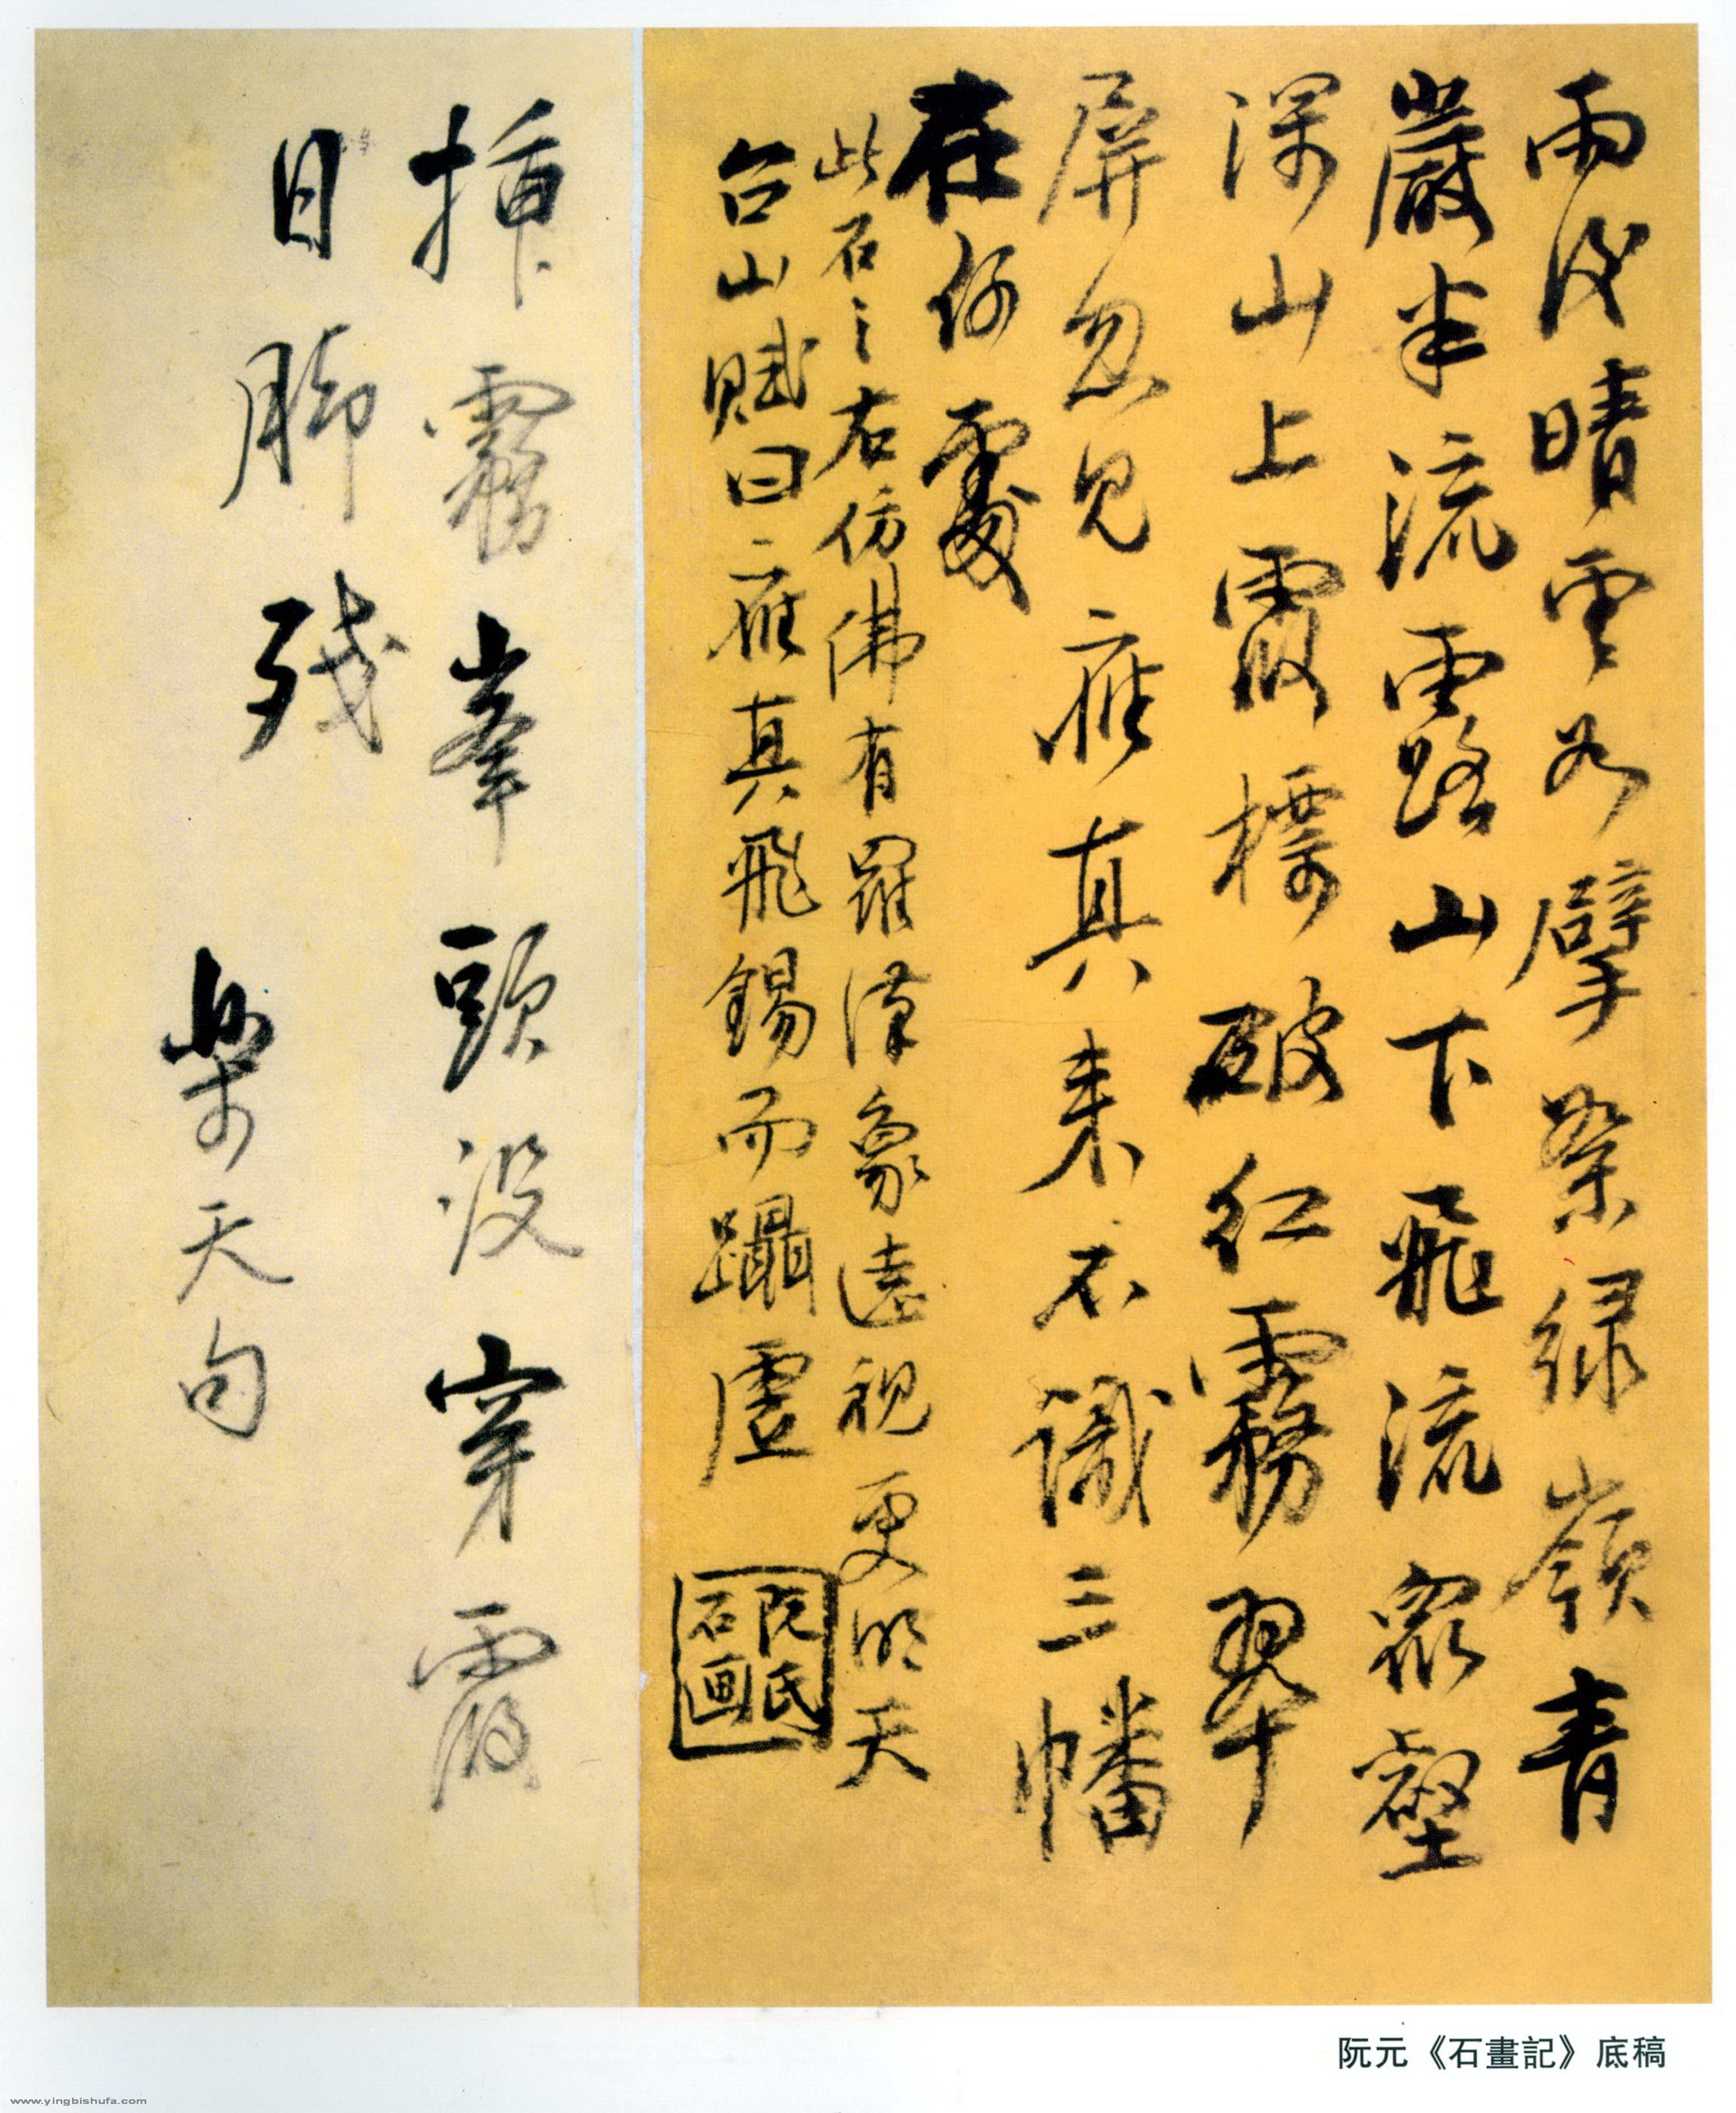 雨後晴雲如擘絮綠嶺青
巖半流露山下飛流衆壑
深山上霞標破紅霧翠
屏忽見應真來不識三幡
在何處
此石之右仿佛有羅漢象遠視更明天
台山賦曰應真飛錫而躡虛
阮氏
石画
插霧峯頭沒穿霞
日腳殘
樂天句
阮元《石畫記》底稿
www.yingbishufa.com